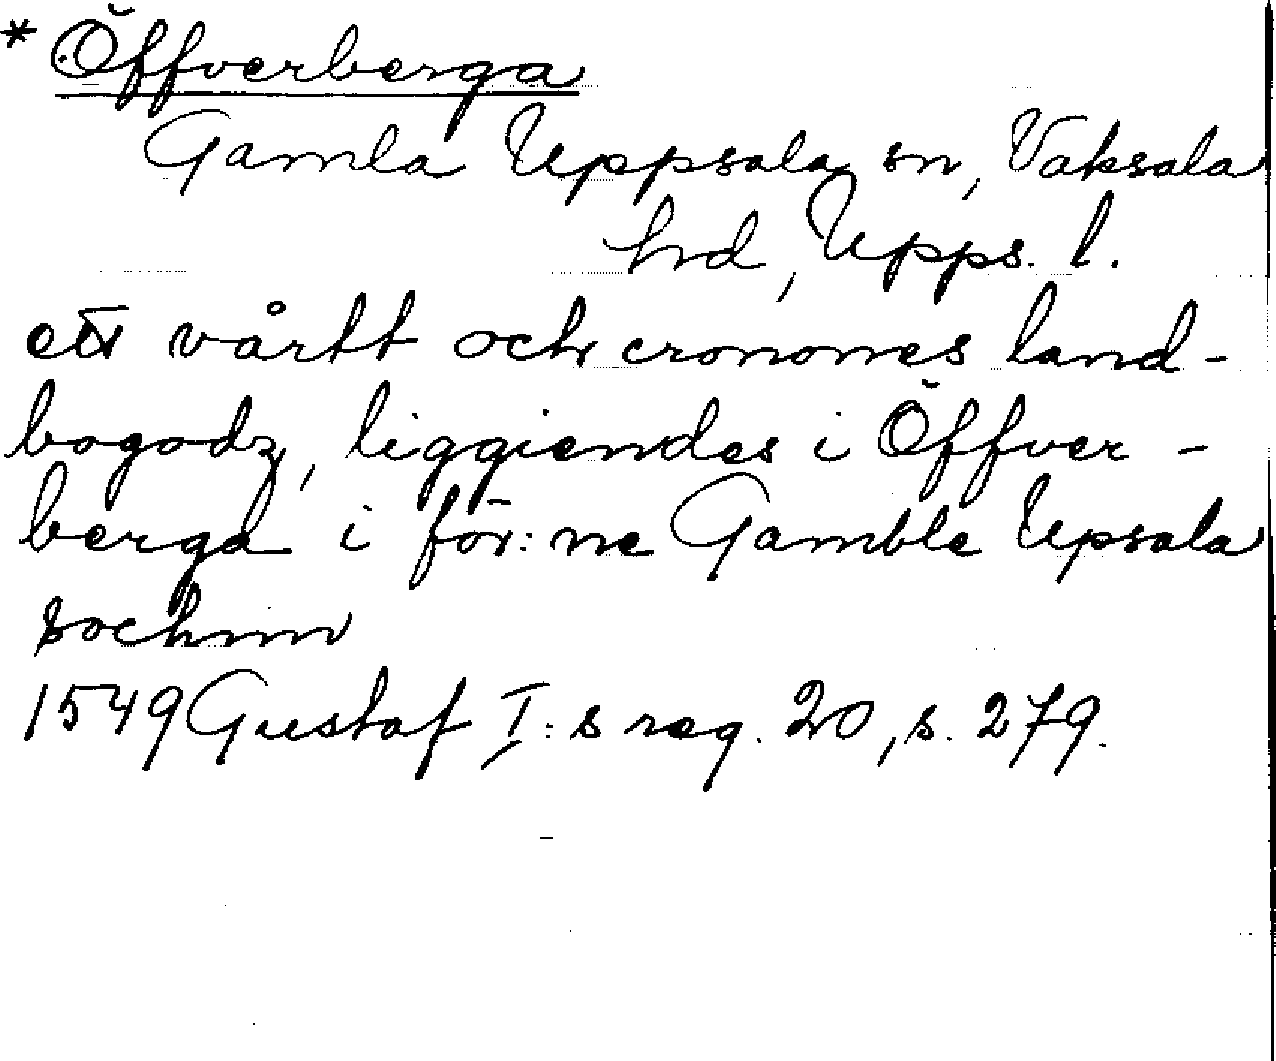 * Öffverberga
Gamla Uppsala sn, Vaksala
hd, Upps. l.
ett vårtt och cronones land-
bogodz, liggiendes i Öffver-
berga i för:ne Gamble Upsala
sochnn
1549 Gustaf I:s reg. 20, s. 279.